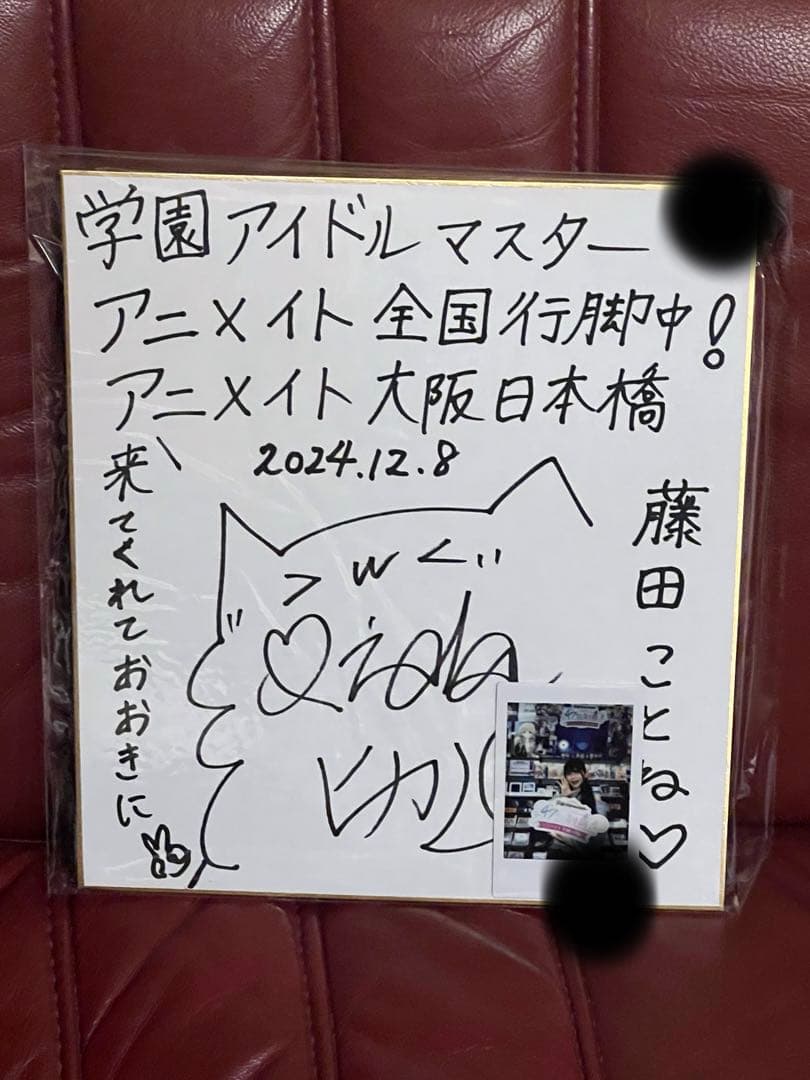 学園アイドルマスター
アニメイト全国行脚中!
アニメイト大阪日本橋
2024.12.8
藤田ことね♡
来てくれておおきに
>w<